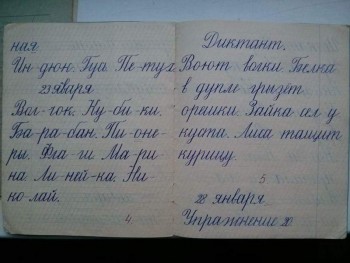 ная
Ин-дюк. Гусь. Пе-тух
23 января
Вол-чок. Ку-би-ки.
Ба-ра-бан. Пи-оне-
ры. Фла-ги. Ма-ри-
на Ли-ней-ка. Ни-
ко-лай.
4
Диктант.
Воют волки. Белка
в дупле грызёт
орешки. Зайка сел у
куста. Лиса тащит
курицу.
5
28 января
Упражнение 20